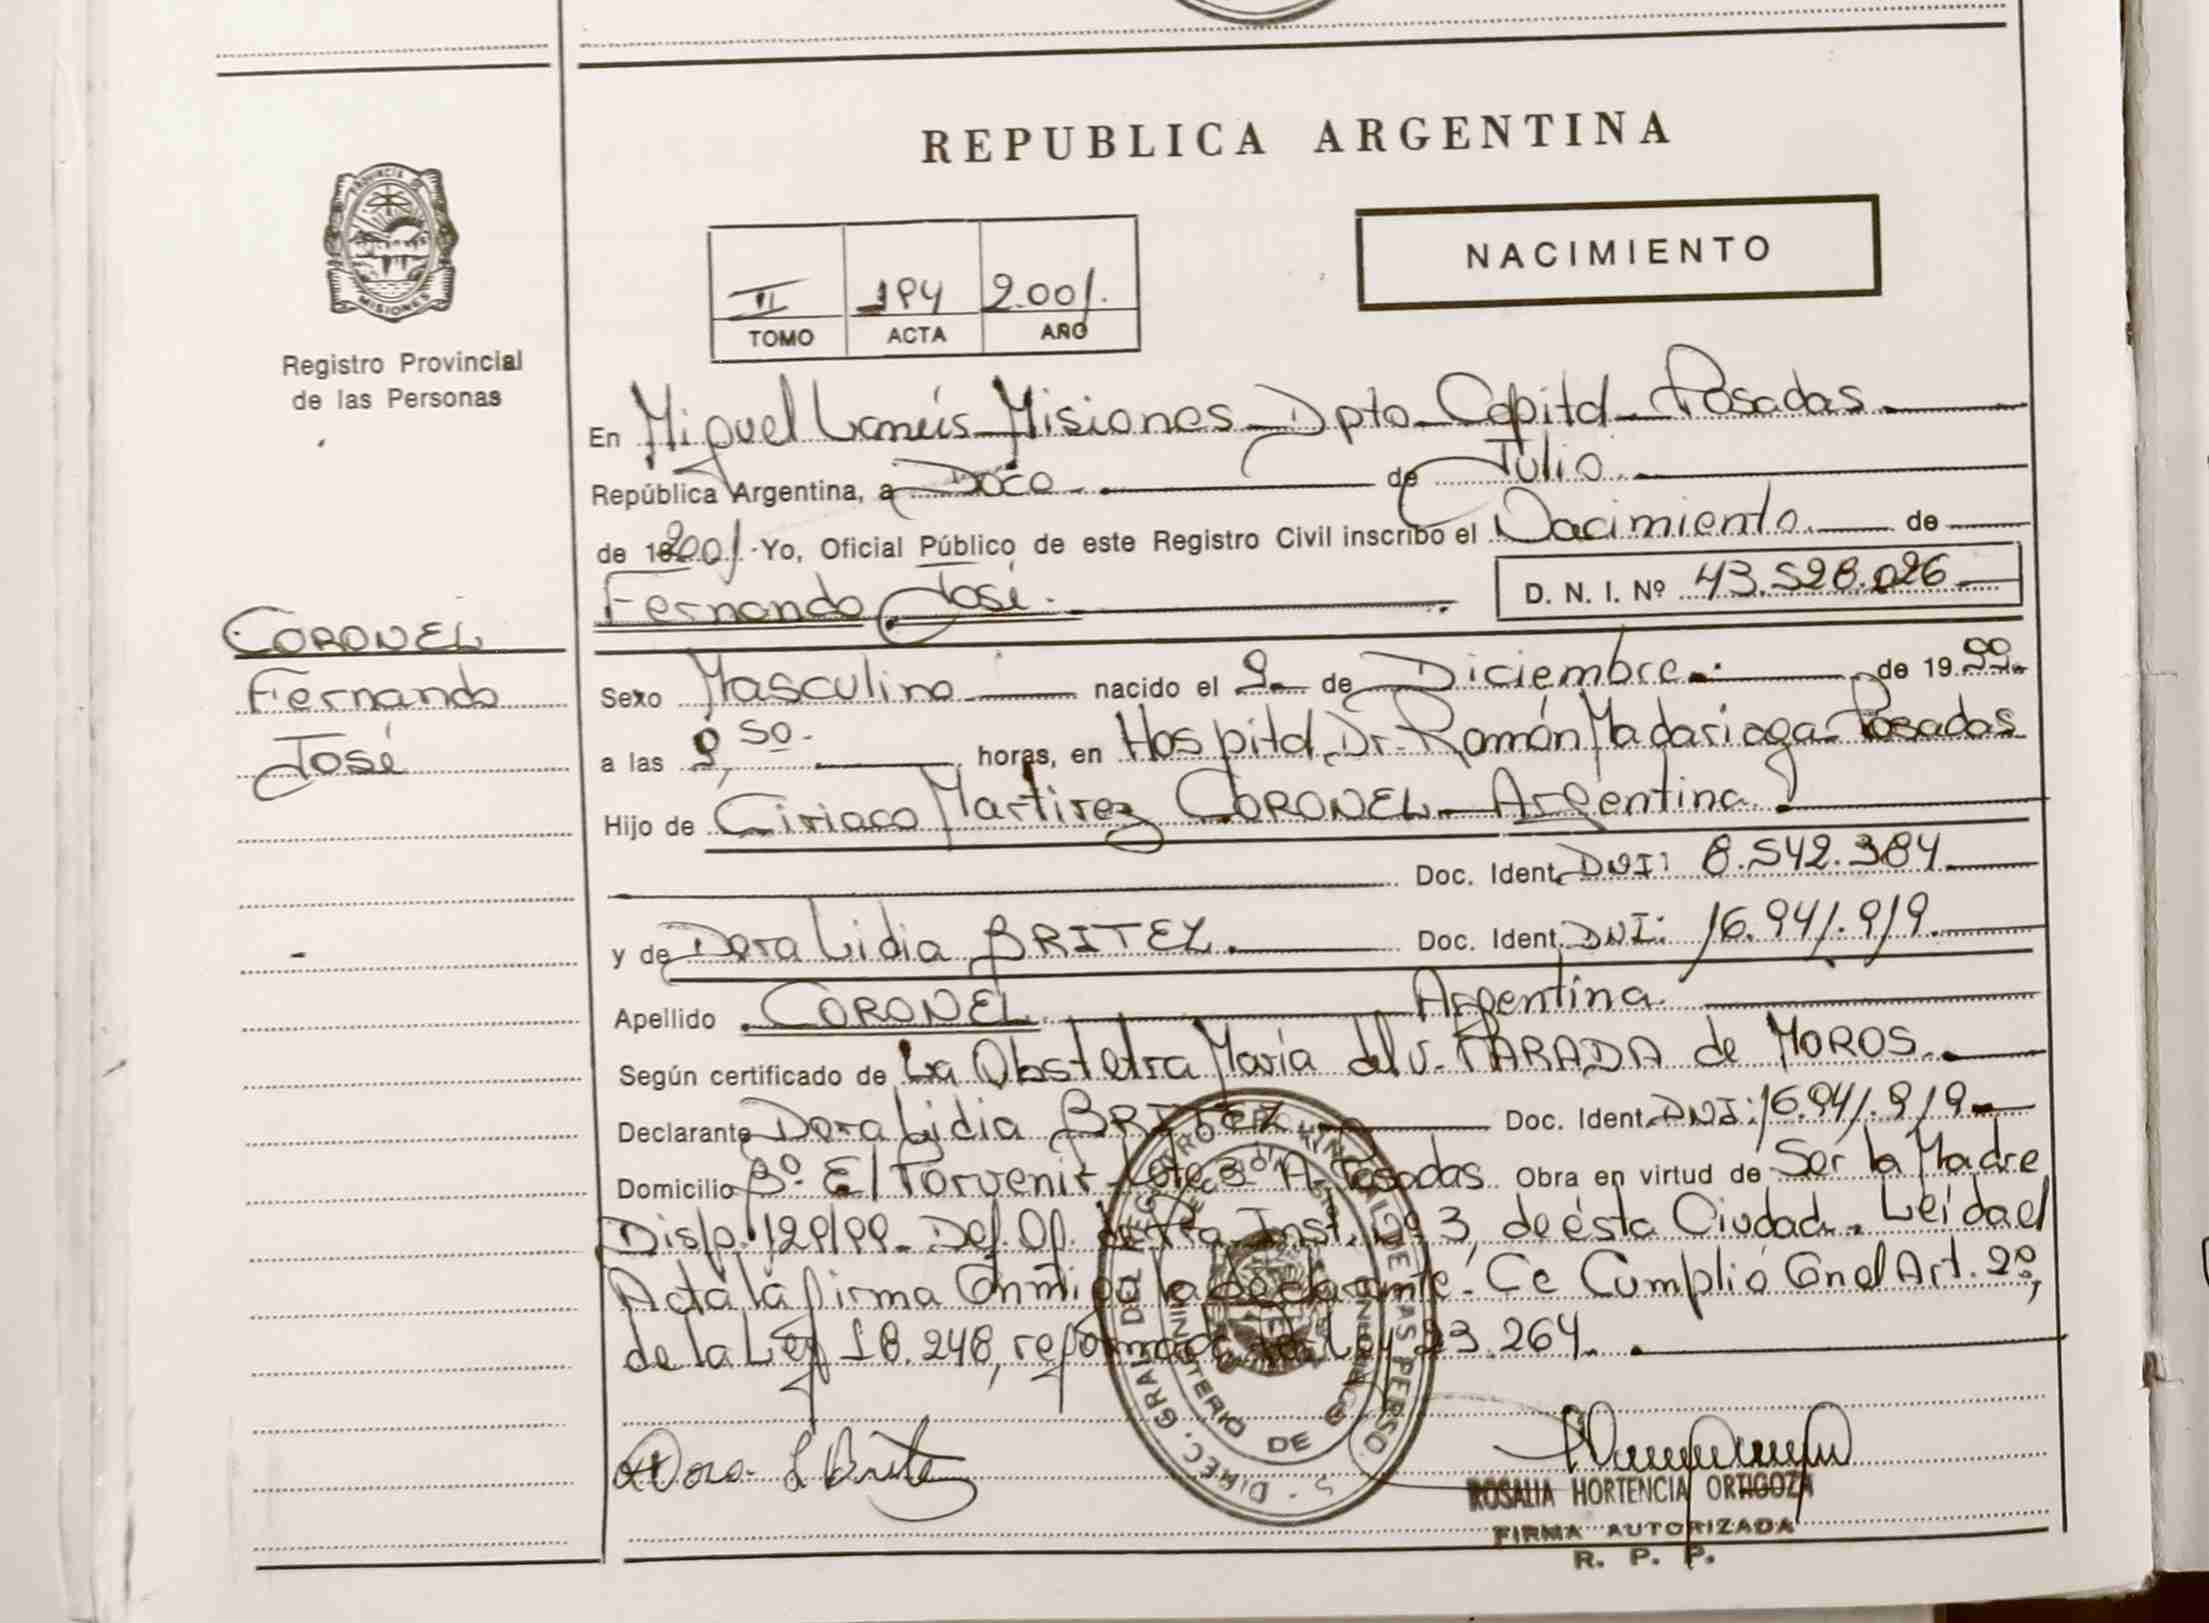 REPUBLICA ARGENTINA
NACIMIENTO
PROVINCIA DE
MISIONES
Registro Provincial
de las Personas
II 194 2.001.
TOMO ACTA AÑO
En Miguel Lanús Misiones Dpto Capital Posadas.
República Argentina, a Doce de Julio
de 2001. Yo, Oficial Público de este Registro Civil inscribo el Nacimiento de
Fernando José. D. N. I. Nº 43.528.026
CORONEL
Fernando
José
Sexo Masculino nacido el 9 de Diciembre de 19 99
a las 9,50. horas, en Hospital Dr. Ramón Madariaga Posadas
Hijo de Ciriaco Martirez CORONEL - Argentina.
Doc. Ident. DNI: 8.542.384
y de Dora Lidia BRITEZ. Doc. Ident. DNI: 16.941.919.
Apellido CORONEL Argentina.
Según certificado de La Obstetra María del V. PARADA de MOROS.
Declarante Dora Lidia BRITEZ Doc. Ident. DNI: 16.941.919
Domicilio Bº El Porvenir Lote 3 A. Posadas. Obra en virtud de Ser la Madre
Disp. 129/99. Def. Of. de 1ra Inst. Nº 3 de ésta Ciudad. Leída el
Acta la firma Conmigo la declarante. Ce Cumplió Con el Art. 2º,
de la Ley 18.248, reformada Ley 23.264.
Dora L Britez
DIREC. GRAL DEL REGISTRO PROVINCIAL DE LAS PERSO
MINISTERIO DE GOB
ROSALIA HORTENCIA ORTIGOZA
FIRMA AUTORIZADA
R. P. P.